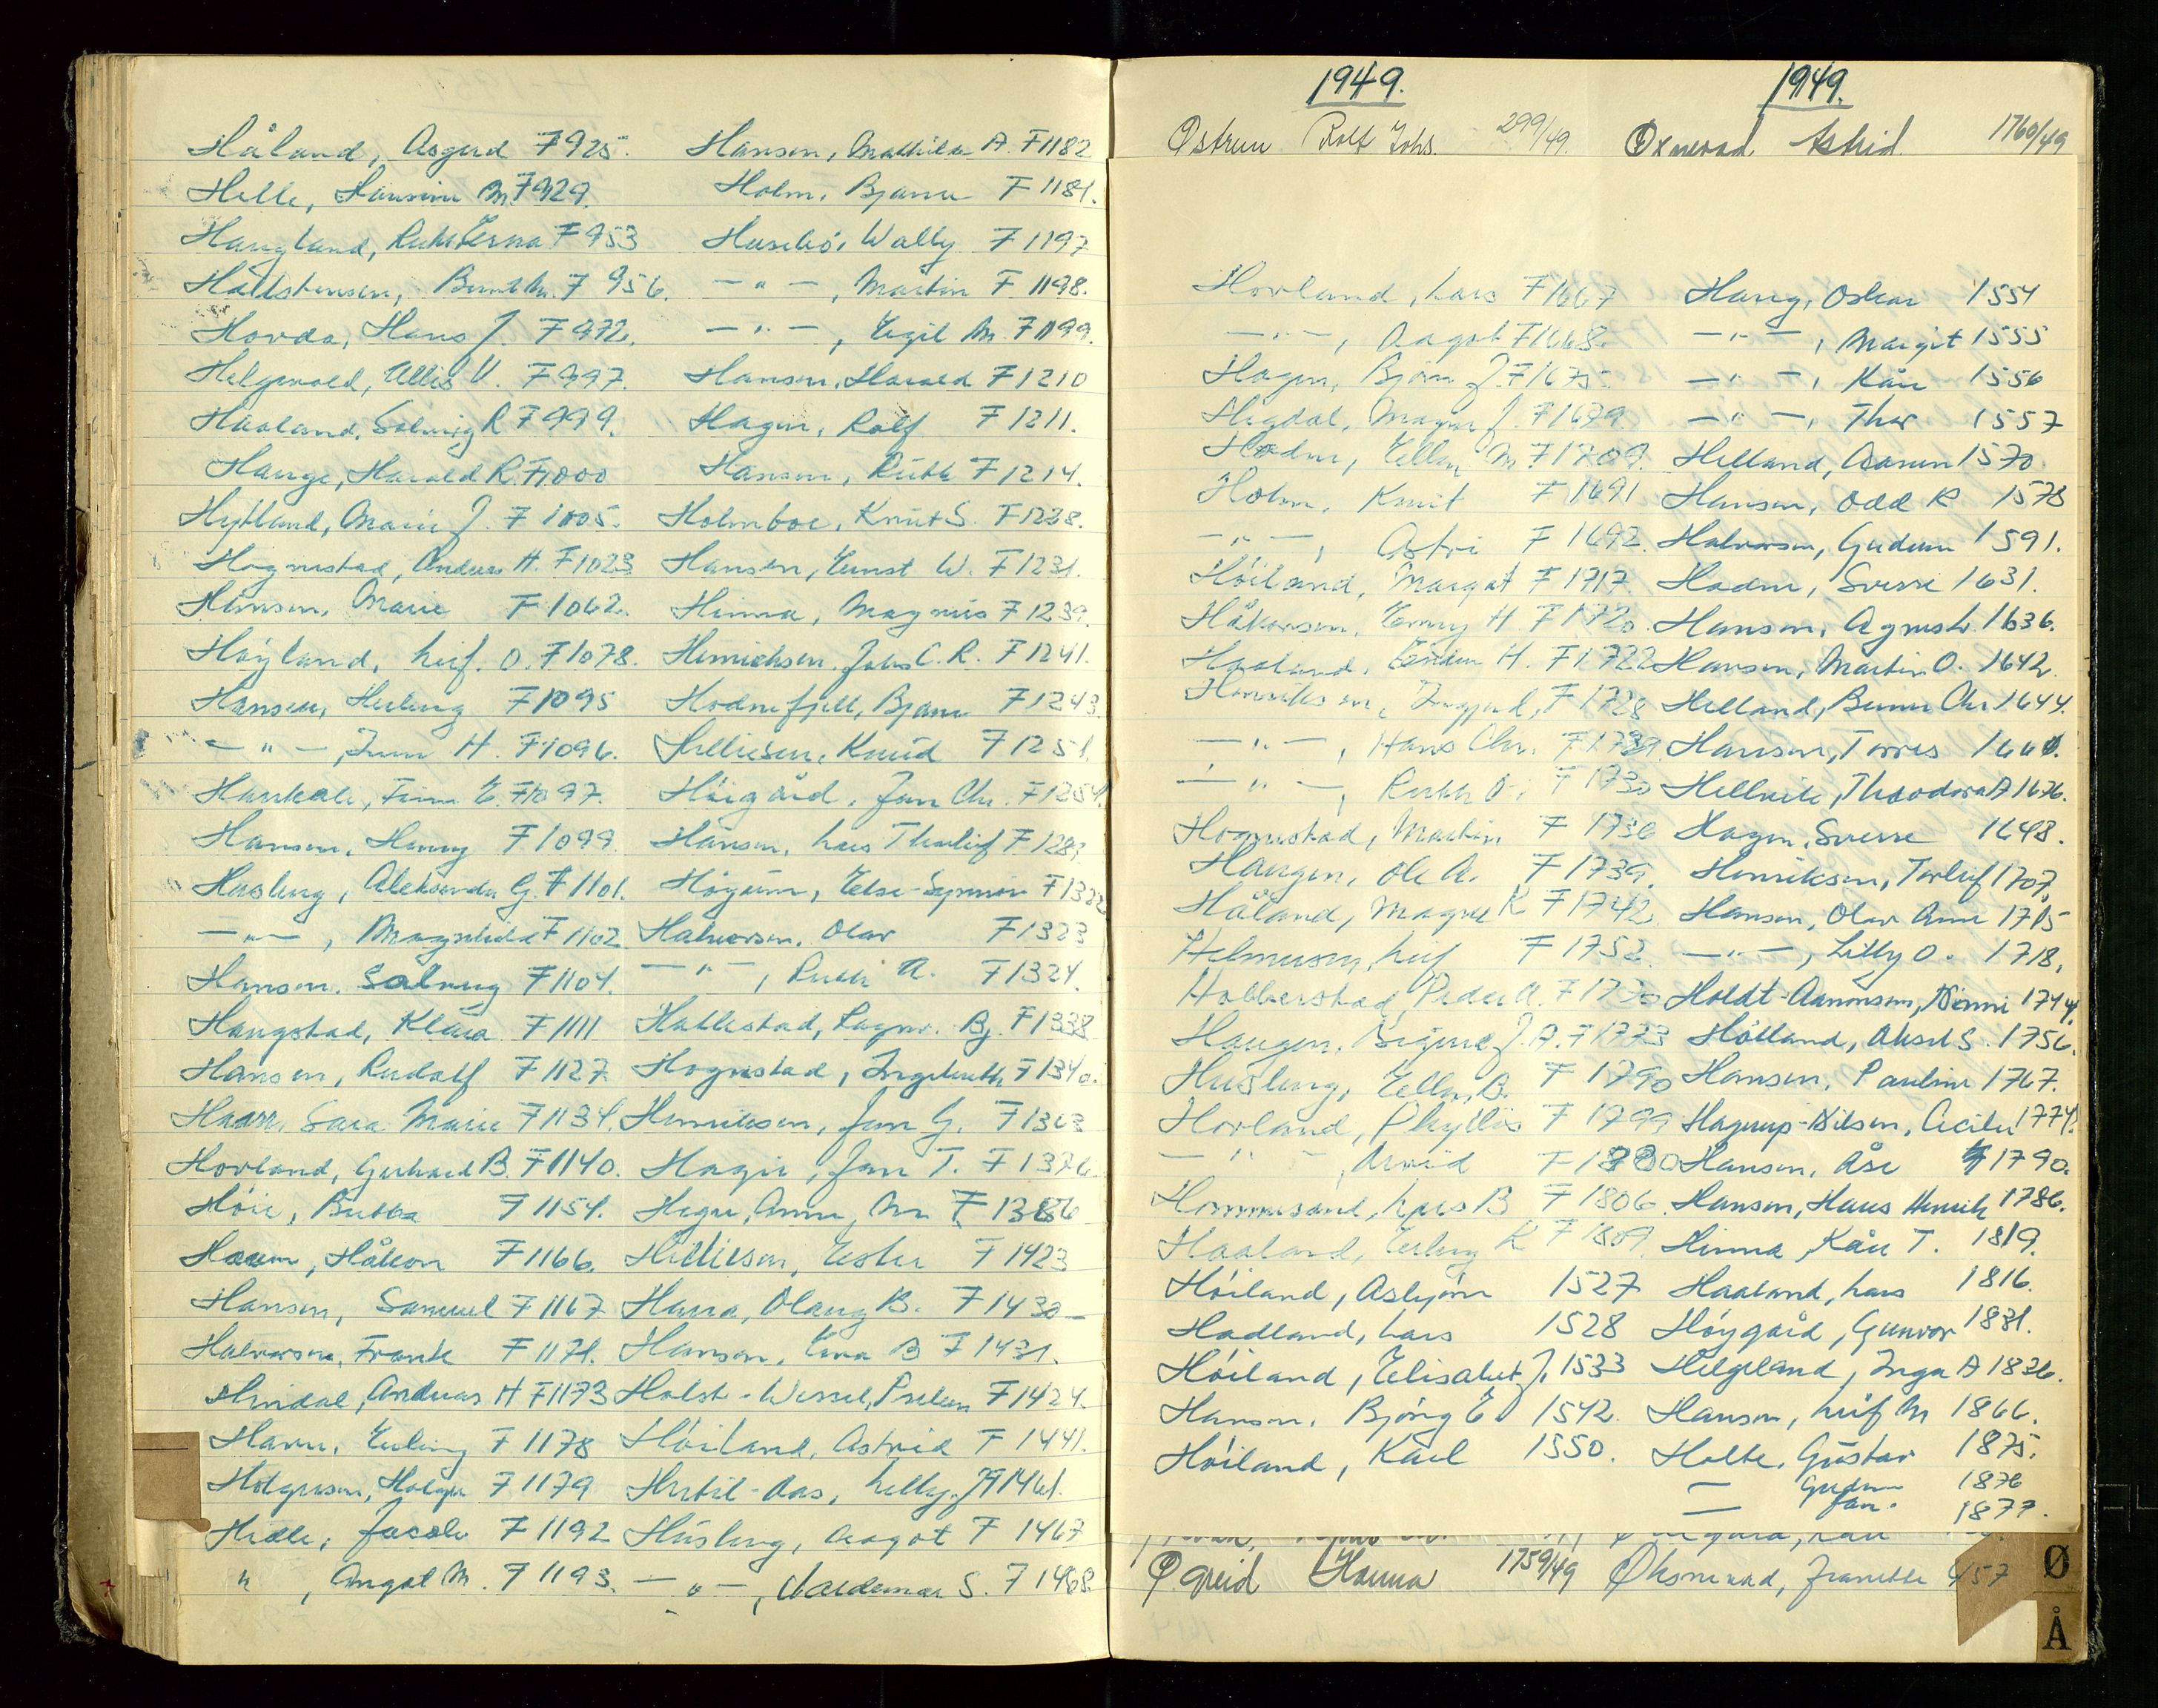 Håland, Asgerd F 925.
Helle, Hansine M. F 929.
Haugland, Ruth Erna F 953
Hallstensen, Bernt M. F 956.
Hovda, Hans J. F 972.
Helgevold, Ellis V. F 997.
Haaland, Solveig R F 999.
Hauge, Harald R. F 1000
Hytland, Marie J. F 1005.
Hognestad, Anders H. F 1023
Hansen, Marie F 1062.
Høyland, Leif. O. F 1078.
Hansen, Herberg F 1095
— " —, Finn H. F 1096.
F 1097.
Hansen, Henny F 1099
Husberg, Aleksander G. F 1101.
— " —, Magnhild F 1102
Hansen, Solveig F 1104.
Haugstad, Klara F 1111
Hansen, Rudolf F 1127
Haarr, Sara Marie F 1134.
Hovland, Gerhard B. F 1140.
Høie, F 1154.
Håkon F 1166.
Hansen, Samuel F 1167
Halvorsen, Frank F 1171.
Hindal, Andreas H F 1173
Havn, Erling F 1178
Holgersen, Holger F 1179
Helle, Jacob F 1192
" , Angot M. F 1193.
Hansen, Mathilde A. F 1182
Holm, Bjarne F 1181.
Husebø, Wally F 1197
— " —, Martin F 1198.
— " —, Egil M. F 1199.
Hansen, Harald F 1210
Hagen, Rolf F 1211.
Hansen, Ruth F 1214.
Holmboe, Knut S. F 1228.
Hansen, Ernst W. F 1231.
Hinna, Magnus F 1239.
Henrichsen, Johs C. R. F 1241.
Hodnefjell, Bjarne F 1243.
Helliesen, Knud F 1251.
Høigård, Jan Chr. F 1254.
Hansen, Lars Thorleif F 128
Else- F 1322
Halvorsen, Olav F 1323
— " —, Ruth A. F 1324.
Hallestad, Ragnv. Bj. F 1338
Hognestad, Ingeborth F 1340.
Henriksen, Jan G. F 1363
Hagir, Jan T. F 1376
Hegre, Anne M. F 1386
Helliesen, Ester F 1423
Hana, Olaug B. F 1430
Hansen, Eva B F 1431.
Holst-Wessel, F 1424.
Høiland, Astrid F 1441.
Lilly. J F 1461.
Husberg, Aagot F 1467
— " —, Valdemar S. F 1468.
1949.
1949.
Østrem Rolf Johs. 299/49.
Øxnevad Astrid 1760/49
Hovland, Lars F 1667
— " —, Aagot F 1668.
Hagen, Bjørn J. F 1675.
Hegdal, Magne J. F 1679.
Hodne, Ellen M. F 1709.
Holm, Knut F 1691
— " —, Astri F 1692.
Høiland, Margot F 1717.
Håkonsen, Enny H. F 1720.
Haaland, H. F 1722
Henriksen, Ingjerd, F 1728
— " —, Hans Chr. F 1729.
— " —, Ruth O. F 1730
Hognestad, Martin F 1736
Haugen, Ole A. F 1739.
Håland, Magne K F 1742
Helmersen, Leif F 1752.
Halberstad, Peder A. F 1770
Haugen, Birgine J. A. F 1773
Husberg, Ella, B. F 1790
Hovland, Phyllis F 1799
— " —, Arvid F 1800
Hommersand, Lars B F 1806
Haaland, Erling K F 1809.
Høiland, Asbjørn 1527
Hadland, Lars 1528
Høiland, Elisabet J. 1533
Hansen, Bjørg E 1542.
Høiland, Karl 1550.
Haug, Oskar 1554
— " —, Margit 1555
— " —, Kåre 1556
— " —, Thor 1557
Helland, Aanen 1570
Hansen, Odd R 1578
Halvorsen, Gudrun 1591.
Hodne, Sverre 1631.
Hansen, Agneth. 1636.
Hansen, Martin O. 1642.
Helland, Benne Chr 1644.
Hansen, Torres 1660.
Hellvik, Theodora A 1676.
Hagen, Sverre 1648.
Henriksen, Torleif 1707,
Hansen, Olav Arne 1715
— " —, Lilly O. 1718.
Holdt-Aanensen, Nenni 1744.
Hølland, Aksel S. 1756.
Hansen, Pauline 1767.
Hagerup-Nilsen, Cecilie 1774.
Hansen, Åse 1790.
Hansen, Hans Henrik 1786.
Hinna, Kåre T. 1819.
Haaland, Lars 1816.
Høygård, Gunvor 1831.
Helgeland, Inga A 1836.
Hansen, Leif M 1866.
Holte, Gustav 1875.
— Gudrun 1876
— Jan. 1877.
Øgreid Hanna 1759/49
Øksnevad, Jeanette 457
Ø
Å